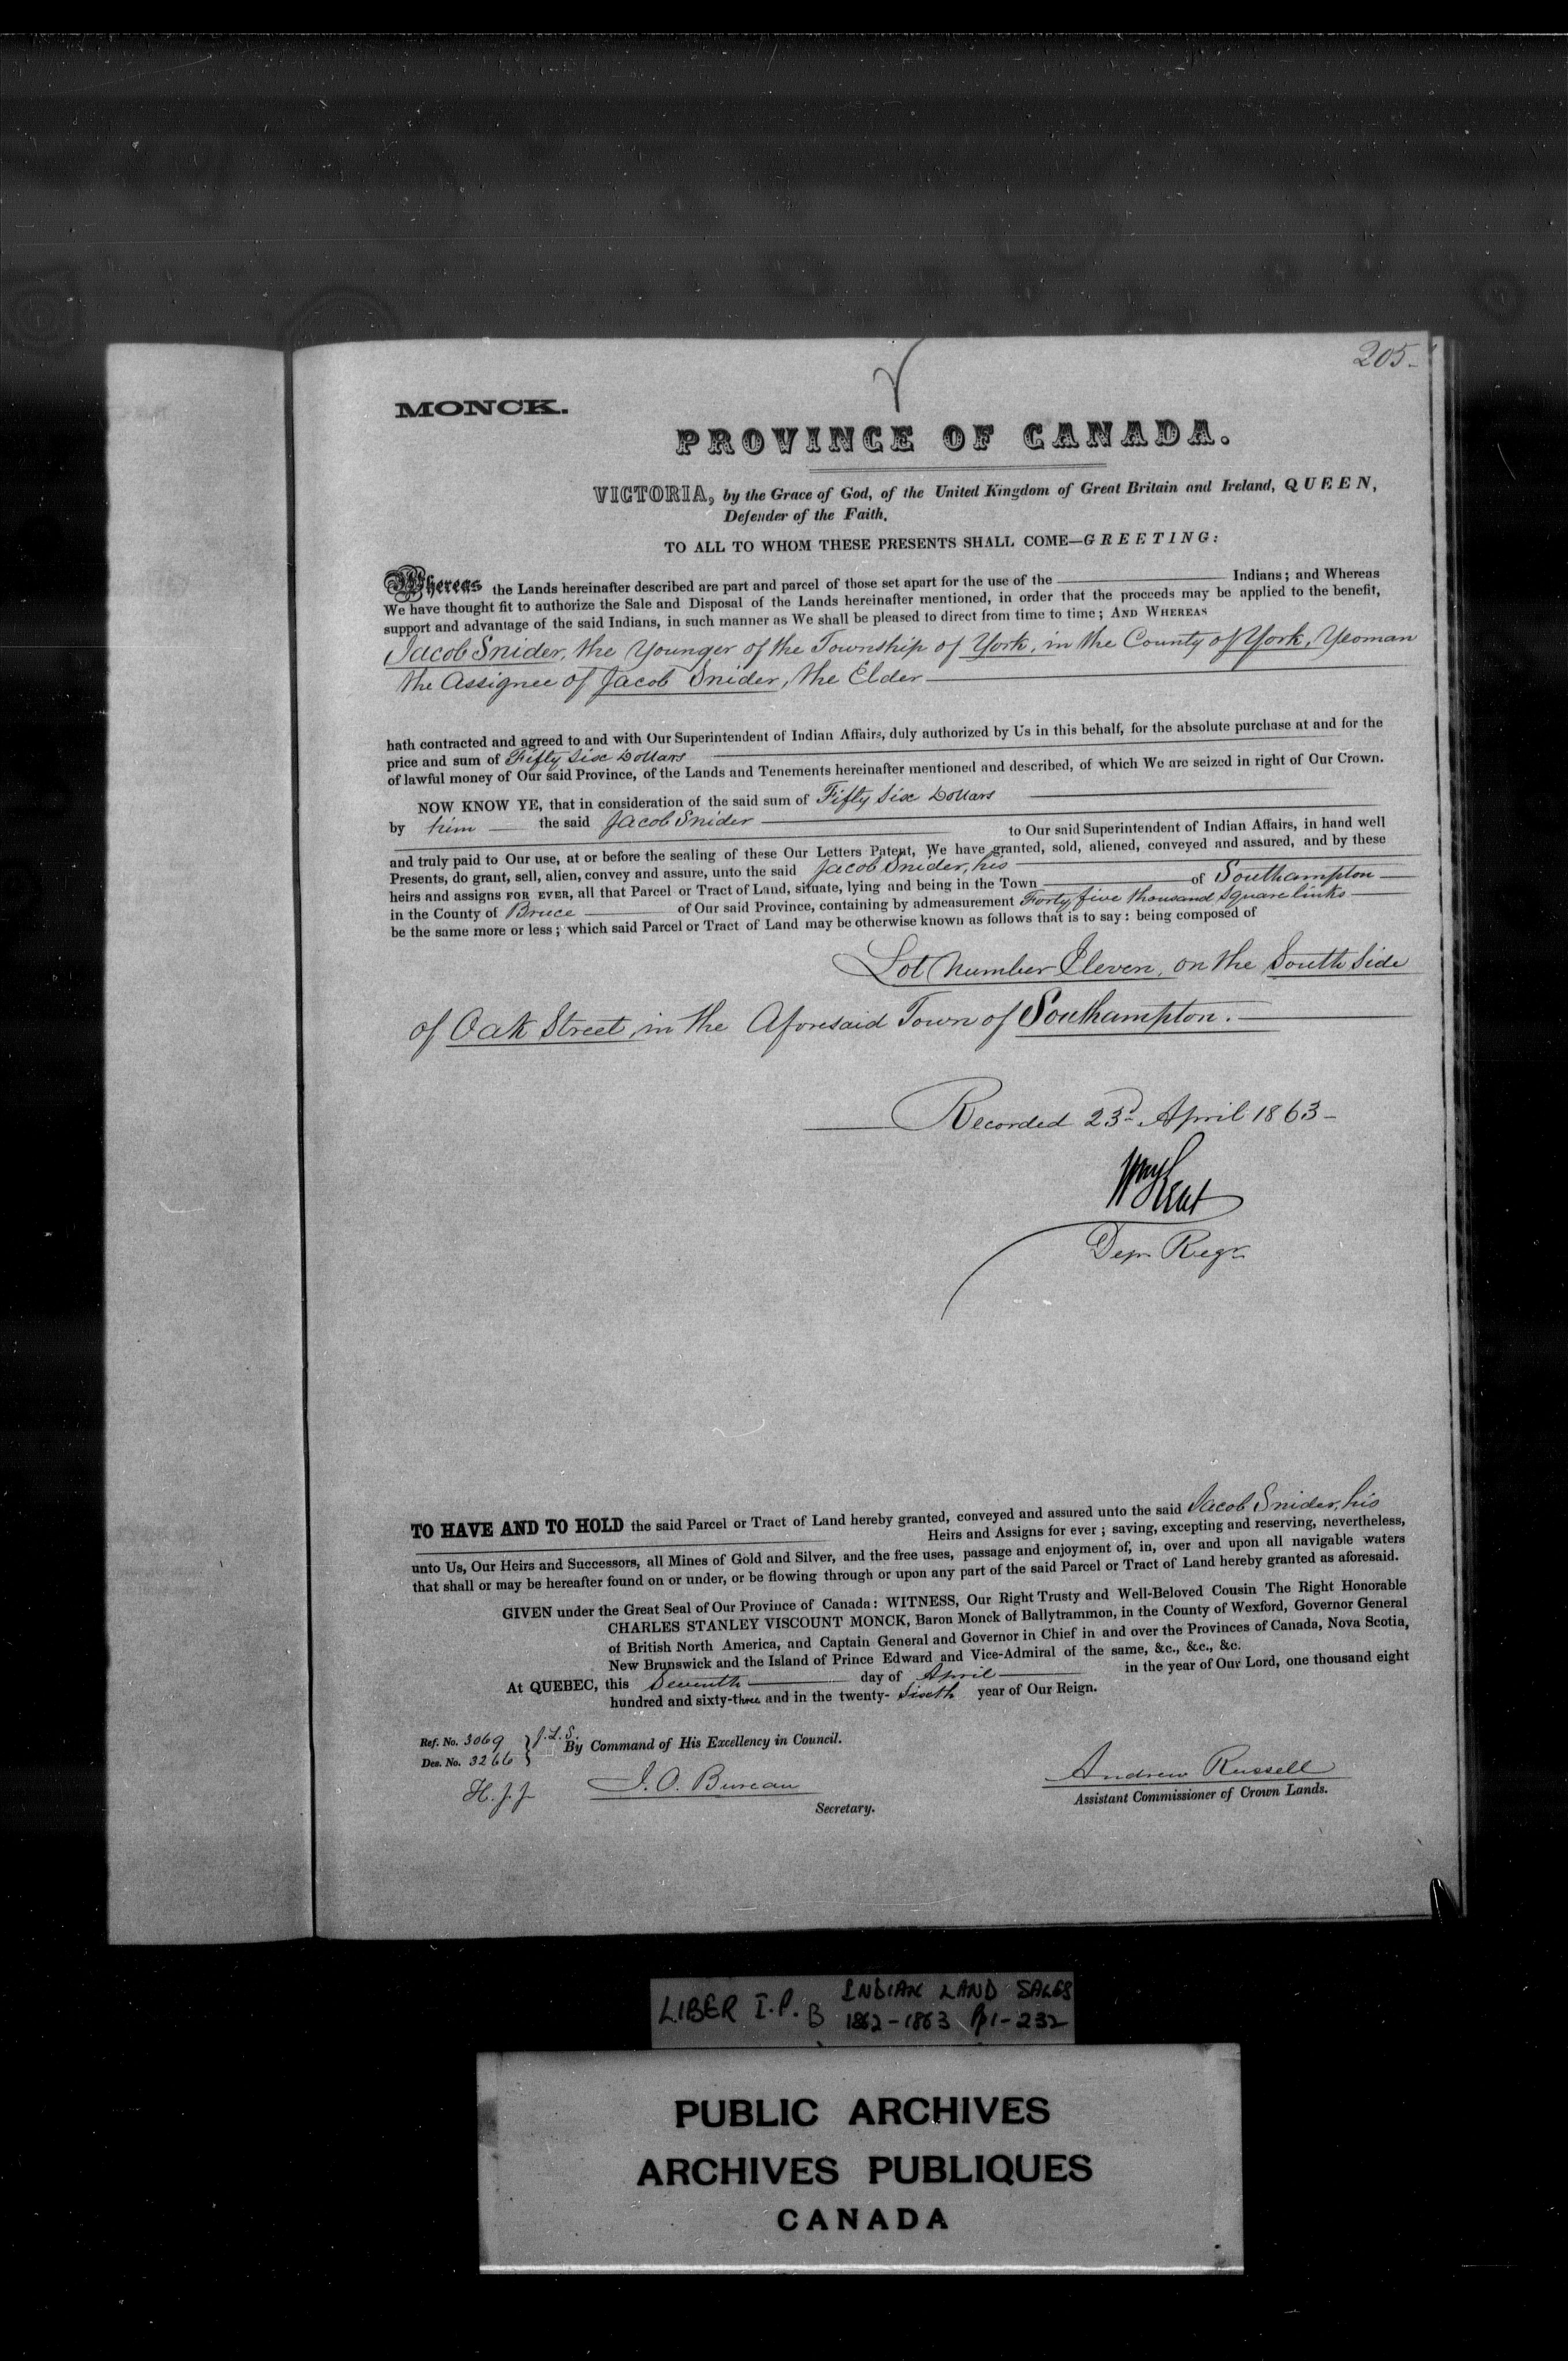 205.
MONCK.
PROVINCE OF CANADA.
VICTORIA, by the Grace of God, of the United Kingdom of Great Britain and Ireland, QUEEN,
Defender of the Faith.
TO ALL TO WHOM THESE PRESENTS SHALL COME—GREETING:
Whereas the Lands hereinafter described are part and parcel of those set apart for the use of the Indians; and Whereas
We have thought fit to authorize the Sale and Disposal of the Lands hereinafter mentioned, in order that the proceeds may be applied to the benefit,
support and advantage of the said Indians, in such manner as We shall be pleased to direct from time to time; AND WHEREAS
Jacob Snider, the Younger of the Township of York, in the County of York, Yeoman
the Assignee of Jacob Snider, the Elder
hath contracted and agreed to and with Our Superintendent of Indian Affairs, duly authorized by Us in this behalf, for the absolute purchase at and for the
price and sum of Fifty Six Dollars
of lawful money of Our said Province, of the Lands and Tenements hereinafter mentioned and described, of which We are seized in right of Our Crown.
NOW KNOW YE, that in consideration of the said sum of Fifty Six Dollars
by him the said Jacob Snider
to Our said Superintendent of Indian Affairs, in hand well
and truly paid to Our use, at or before the sealing of these Our Letters Patent, We have granted, sold, aliened, conveyed and assured, and by these
Presents, do grant, sell, alien, convey and assure, unto the said Jacob Snider, his
heirs and assigns FOR EVER, all that Parcel or Tract of Land, situate, lying and being in the Town of Southampton
in the County of Bruce of Our said Province, containing by admeasurement Forty five thousand Square links
be the same more or less; which said Parcel or Tract of Land may be otherwise known as follows that is to say: being composed of
Lot Number Eleven, on the South Side
of Oak Street, in the Aforesaid Town of Southampton.
Recorded 23d April 1863
Wm Kent
Depy Regr
TO HAVE AND TO HOLD the said Parcel or Tract of Land hereby granted, conveyed and assured unto the said Jacob Snider, his
Heirs and Assigns for ever; saving, excepting and reserving, nevertheless,
unto Us, Our Heirs and Successors, all Mines of Gold and Silver, and the free uses, passage and enjoyment of, in, over and upon all navigable waters
that shall or may be hereafter found on or under, or be flowing through or upon any part of the said Parcel or Tract of Land hereby granted as aforesaid.
GIVEN under the Great Seal of Our Province of Canada: WITNESS, Our Right Trusty and Well-Beloved Cousin The Right Honorable
CHARLES STANLEY VISCOUNT MONCK, Baron Monck of Ballytrammon, in the County of Wexford, Governor General
of British North America, and Captain General and Governor in Chief in and over the Provinces of Canada, Nova Scotia,
New Brunswick and the Island of Prince Edward and Vice-Admiral of the same, &c., &c., &c.
At QUEBEC, this Seventh day of April in the year of Our Lord, one thousand eight
hundred and sixty-three and in the twenty-Sixth year of Our Reign.
Ref. No. 3069 J.L.S.
Des. No. 3266 By Command of His Excellency in Council.
H.J.J. J. O. Bureau
Secretary.
Andrew Russell
Assistant Commissioner of Crown Lands.
LIBER I.P. B INDIAN LAND SALES
1862-1863 Pp 1-232
PUBLIC ARCHIVES
ARCHIVES PUBLIQUES
CANADA